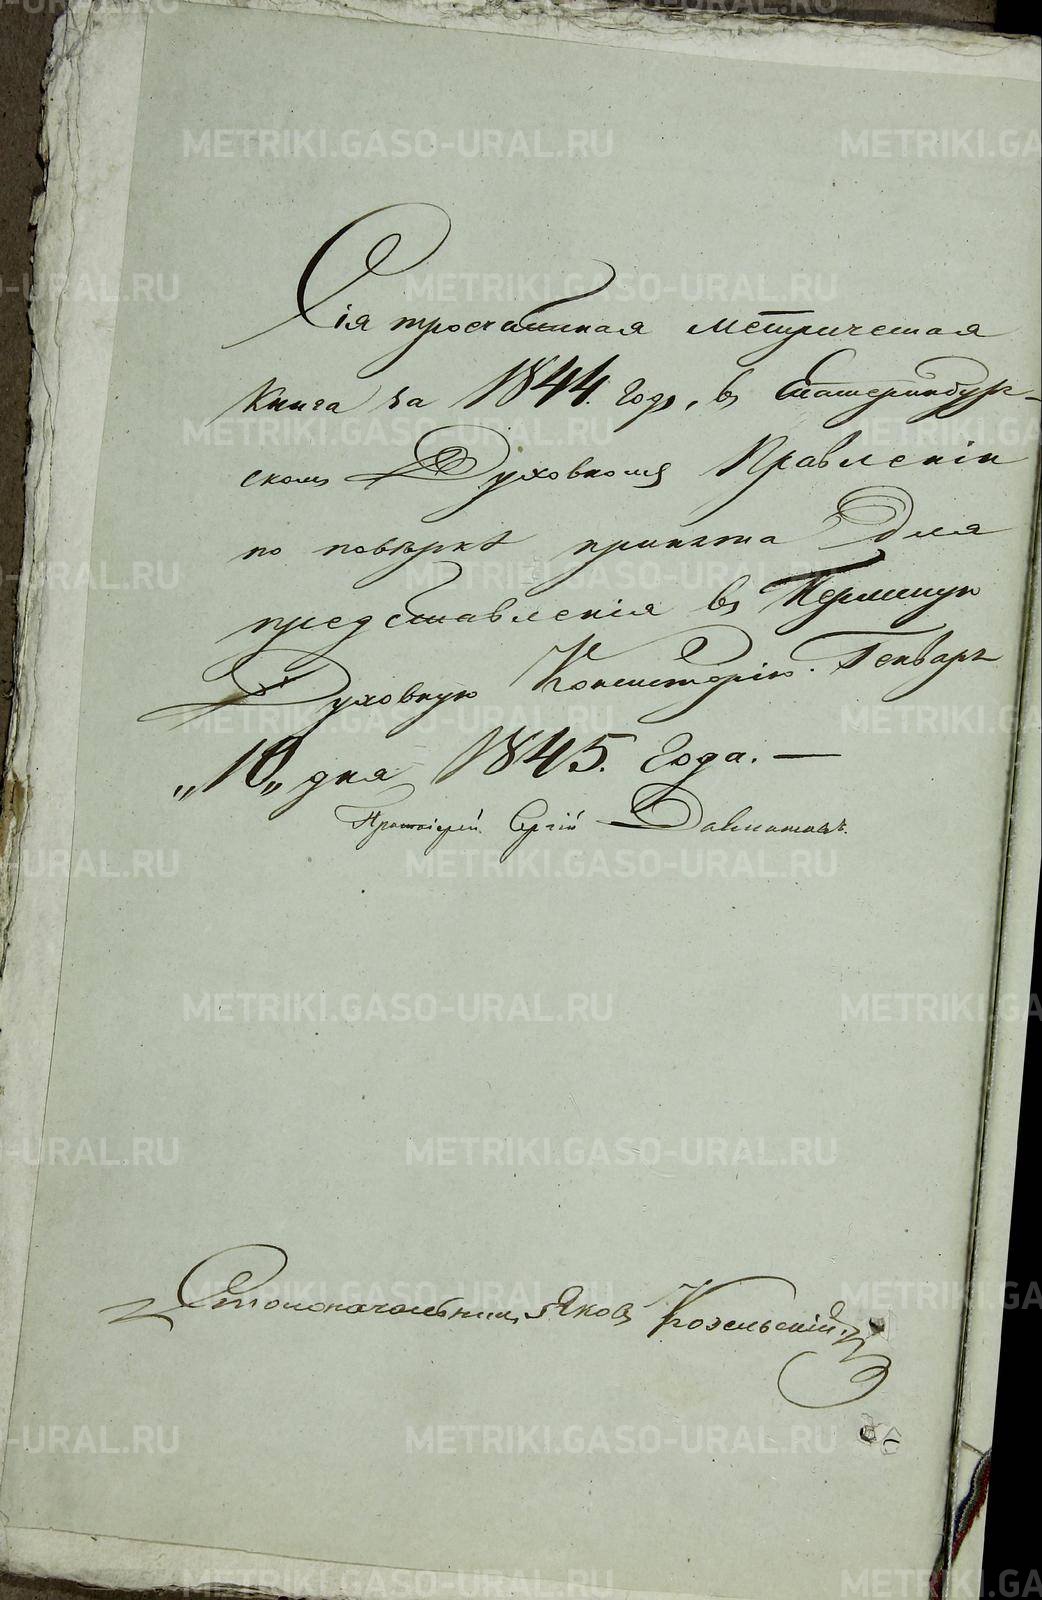 Сія просчитанная метрическая
Книга за 1844. Годъ, въ Екатеринбург-
скомъ Духовномъ Правленіи
по повѣркѣ принята для
представленія въ Пермскую
Духовную Консисторію. Генваря
„10„ дня 1845. Года. —
Протоіерей Сергій
Столоначальникъ Яковъ Козельскій.
METRIKI.GASO-URAL.RU